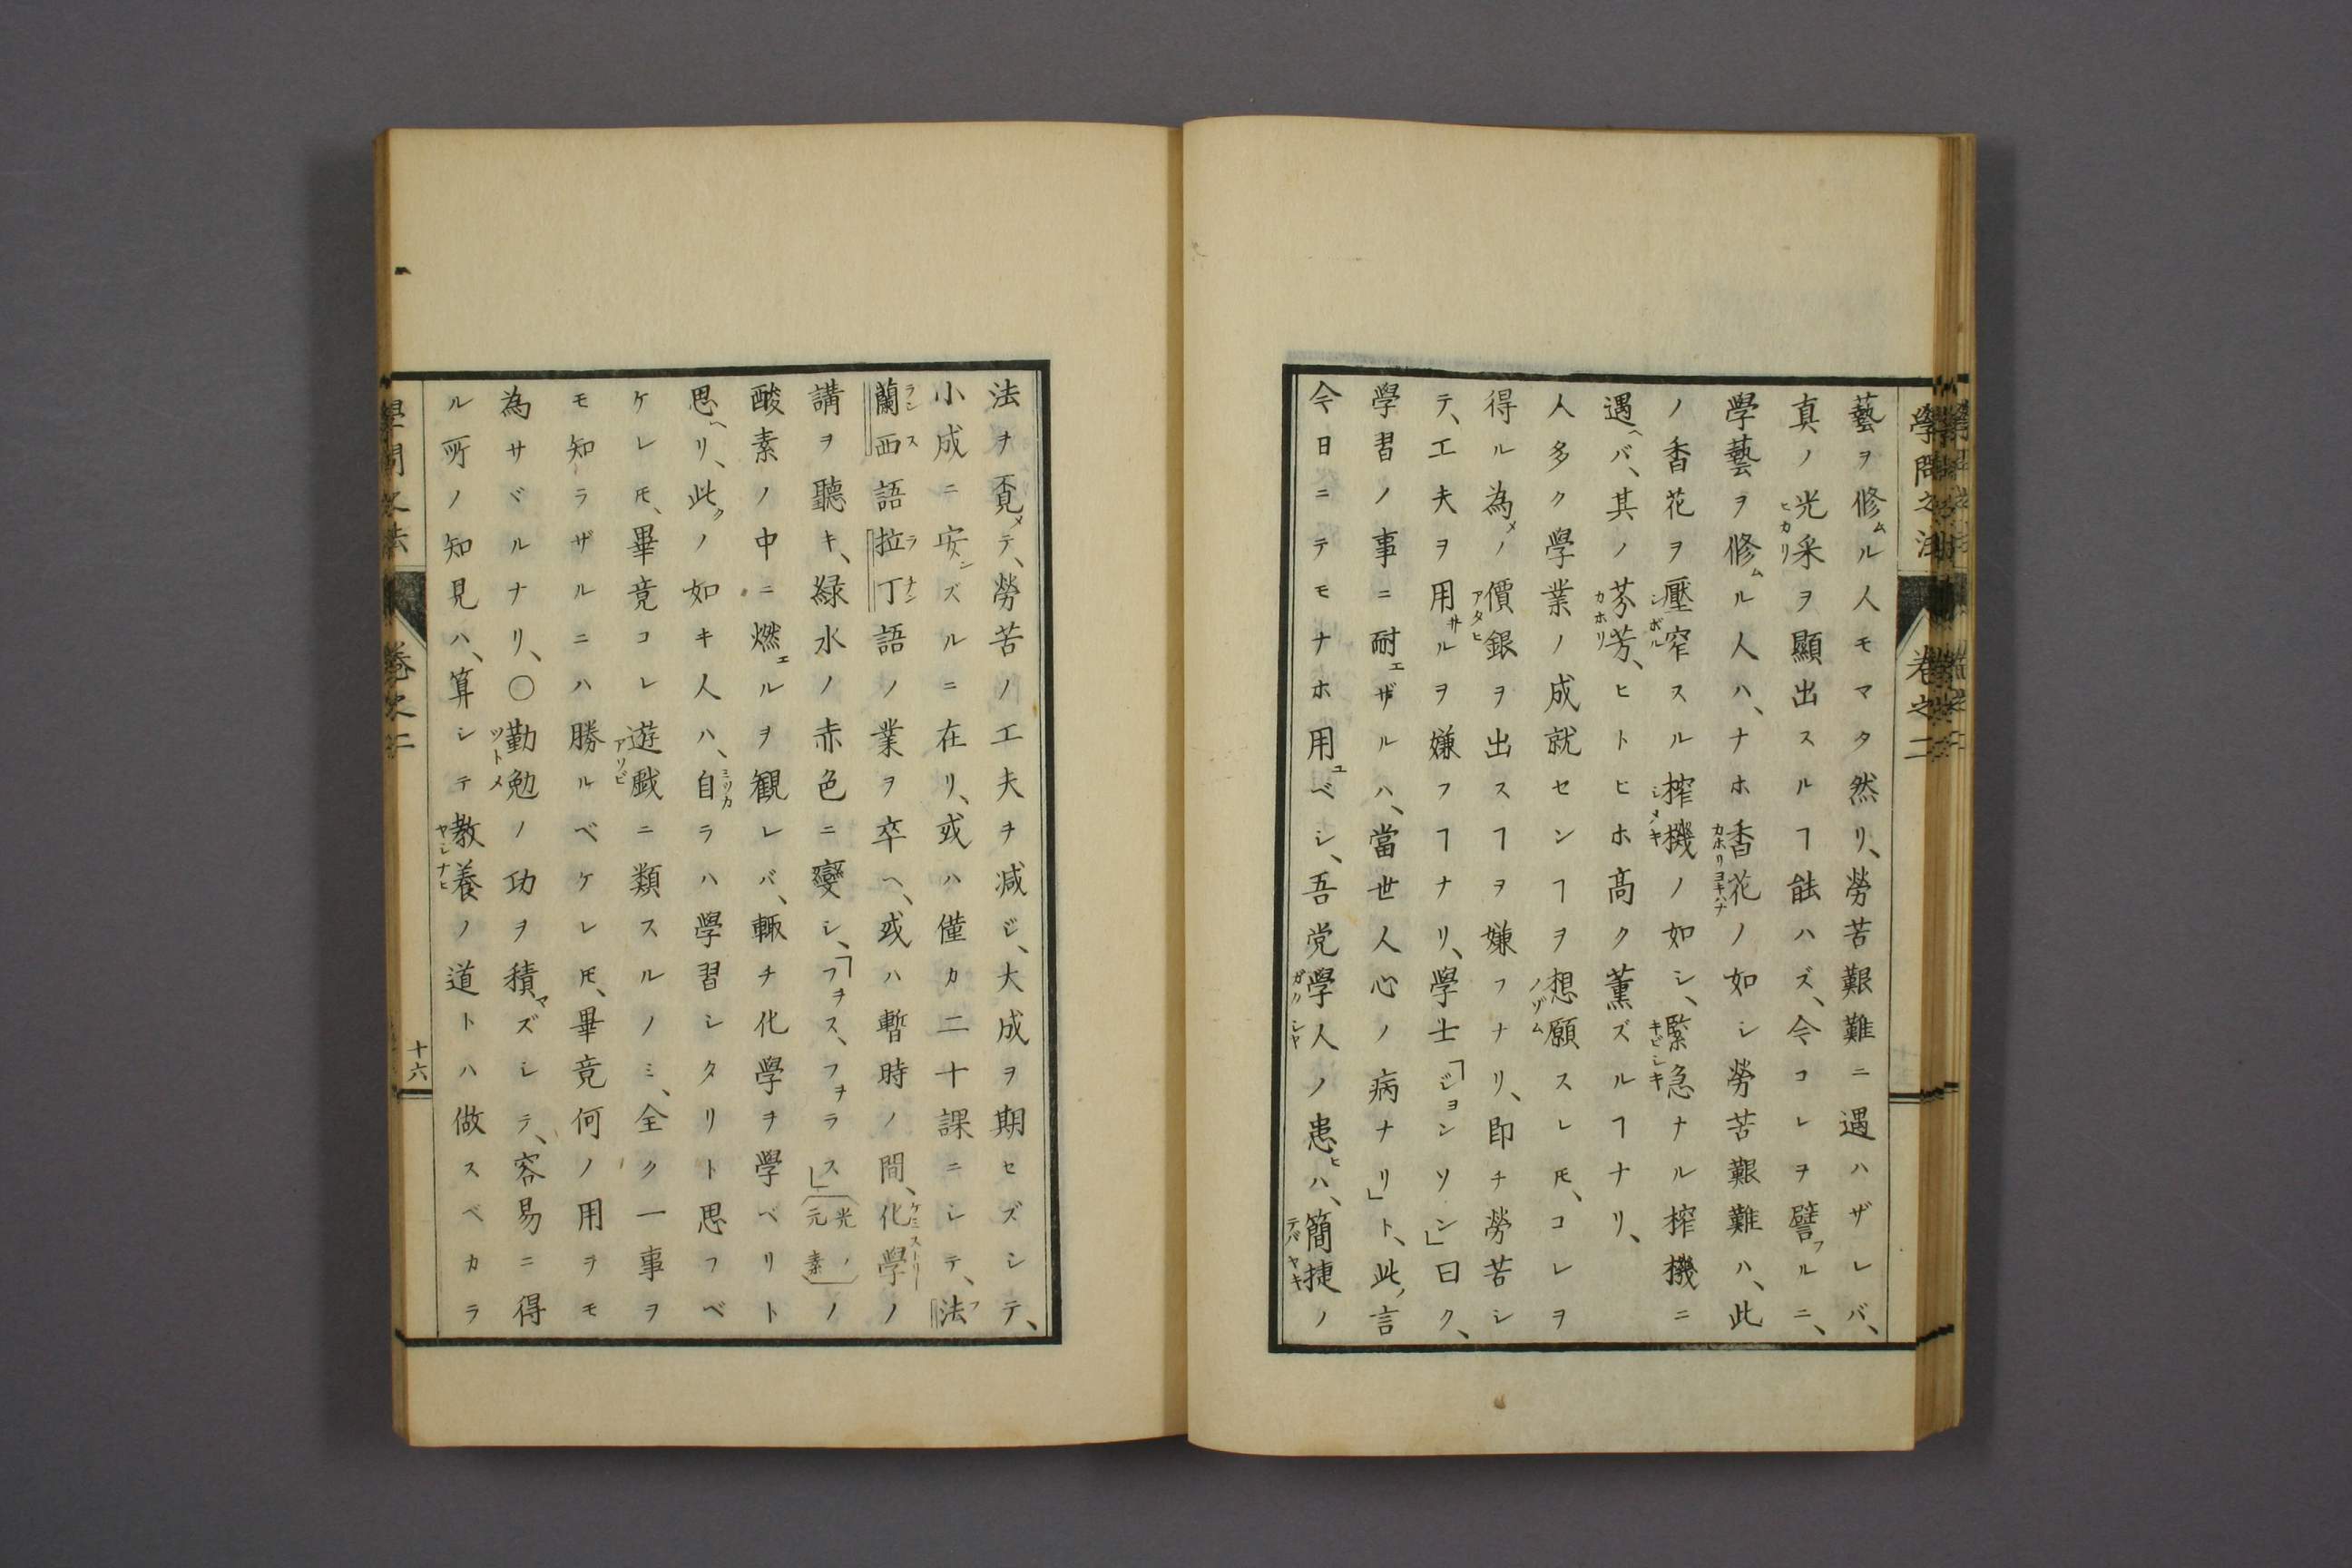 學問之法
卷之二
藝ヲ修ムル人モマタ然リ、勞苦艱難ニ遇ハザレバ、
真ノ光采ヲ顯出スルヿ能ハズ、今コレヲ譬フルニ、
學藝ヲ修ムル人ハ、ナホ香花ノ如シ勞苦艱難ハ、此
ノ香花ヲ壓窄スル搾機ノ如シ、緊急ナル搾機ニ
遇ヘバ、其ノ芬芳、ヒトヒホ高ク薫ズルヿナリ、
人多ク學業ノ成就センヿヲ想願スレ𪜈、コレヲ
得ル為メノ價銀ヲ出スヿヲ嫌フナリ、即チ勞苦シ
テ、工夫ヲ用サルヲ嫌フヿナリ、學士「ジョンソン」曰ク、
學習ノ事ニ耐エザルハ、當世人心ノ病ナリ」ト、此ノ言
今日ニテモナホ用ユベシ、吾党學人ノ患ヒハ、簡捷ノ
法ヲ覓メテ、勞苦ノ工夫ヲ减ジ、大成ヲ期セズシテ、
小成ニ安ンズルニ在リ、或ハ僅カ二十課ニシテ、法
蘭西語拉丁語ノ業ヲ卒ヘ、或ハ暫時ノ間、化學ノ
講ヲ聽キ、緑水ノ赤色ニ變シ、「フヲス、フヲラス」(光ノ元素)ノ
酸素ノ中ニ燃エルヲ観レバ、輙チ化学ヲ學ベリト
思ヘリ、此クノ如キ人ハ、自ラハ學習シタリト思フベ
ケレ𪜈、畢竟コレ遊戯ニ類スルノミ、全ク一事ヲ
モ知ラザルニハ勝ルベケレ𪜈、畢竟何ノ用ヲモ
為サヾルナリ、〇勤勉ノ功ヲ積マズシテ、容易ニ得
ル所ノ知見ハ、算シテ教養ノ道トハ做スベカラ
十六